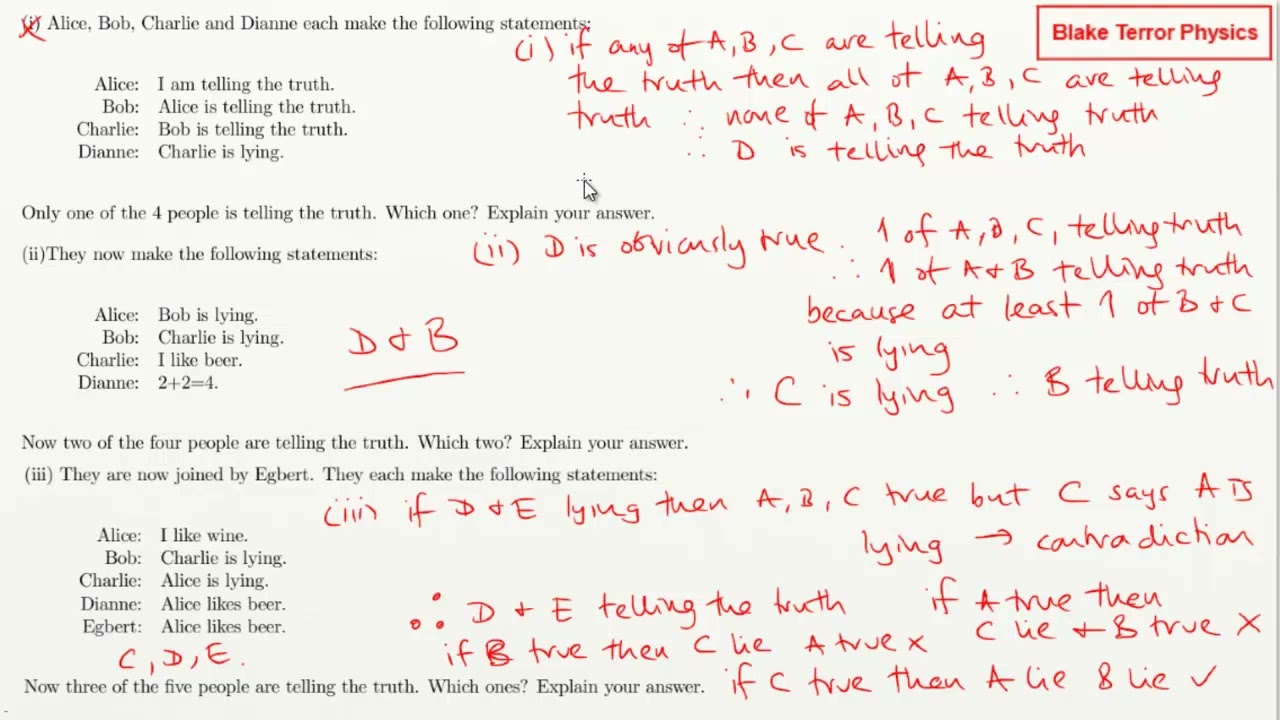 (i) Alice, Bob, Charlie and Dianne each make the following statements:
Blake Terror Physics
(i) if any of A, B, C are telling
the truth then all of A, B, C are telling
truth ∴ none of A, B, C telling truth
∴ D is telling the truth
Alice: I am telling the truth.
Bob: Alice is telling the truth.
Charlie: Bob is telling the truth.
Dianne: Charlie is lying.
Only one of the 4 people is telling the truth. Which one? Explain your answer.
(ii)They now make the following statements:
(ii) D is obviously true. 1 of A, B, C, telling truth
∴ 1 of A & B telling truth
because at least 1 of B & C
is lying
∴ C is lying ∴ B telling truth
Alice: Bob is lying.
Bob: Charlie is lying.
Charlie: I like beer.
Dianne: 2+2=4.
D & B
Now two of the four people are telling the truth. Which two? Explain your answer.
(iii) They are now joined by Egbert. They each make the following statements:
(iii) if D & E lying then A, B, C true but C says A is
lying → contradiction
Alice: I like wine.
Bob: Charlie is lying.
Charlie: Alice is lying.
Dianne: Alice likes beer.
Egbert: Alice likes beer.
∴ D & E telling the truth
if A true then
C lie & B true X
if B true then C lie A true X
if C true then A lie B lie ✓
C, D, E.
Now three of the five people are telling the truth. Which ones? Explain your answer.